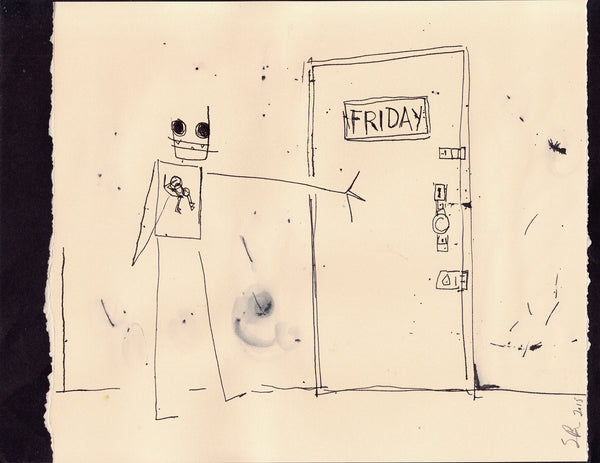 FRIDAY
2015